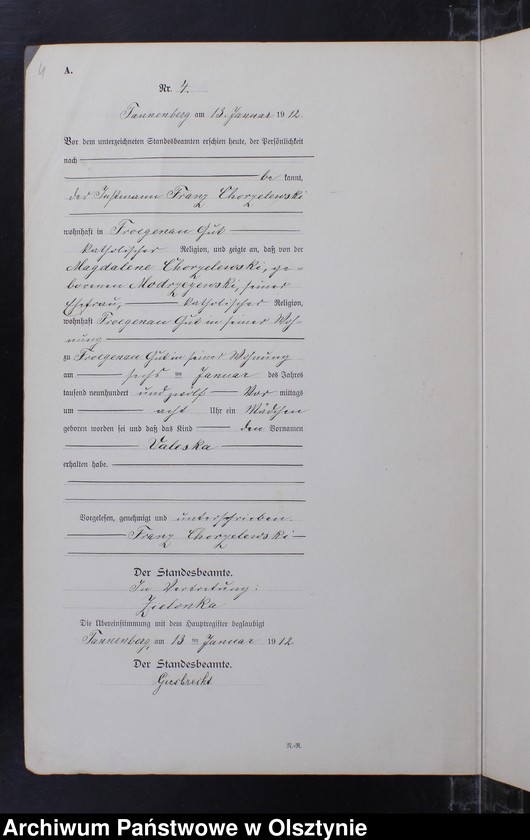 4
A.
Nr. 4.
Tannenberg am 13. Januar 1912.
Vor dem unterzeichneten Standesbeamten erschien heute, der Persönlichkeit
nach
be kannt,
der Instmann Franz Chorzelewski
wohnhaft in Froegenau Gut
katholischer Religion, und zeigte an, daß von der
Magdalene Chorzelewski, ge-
borenen Modrzejewski, seiner
Ehefrau, katholischer Religion,
wohnhaft Froegenau Gut in seiner Woh-
nung
zu Froegenau Gut in seiner Wohnung
am sechs ten Januar des Jahres
tausend neunhundert und zwölf Vor mittags
um acht Uhr ein Mädchen
geboren worden sei und daß das Kind den Vornamen
Valeska
erhalten habe.
Vorgelesen, genehmigt und unterschrieben.
Franz Chorzelewski
Der Standesbeamte.
In Vertretung:
Zielonka
Die Übereinstimmung mit dem Hauptregister beglaubigt
Tannenberg, am 13 ten Januar 1912
Der Standesbeamte.
N.-R.
Archiwum Państwowe w Olsztynie